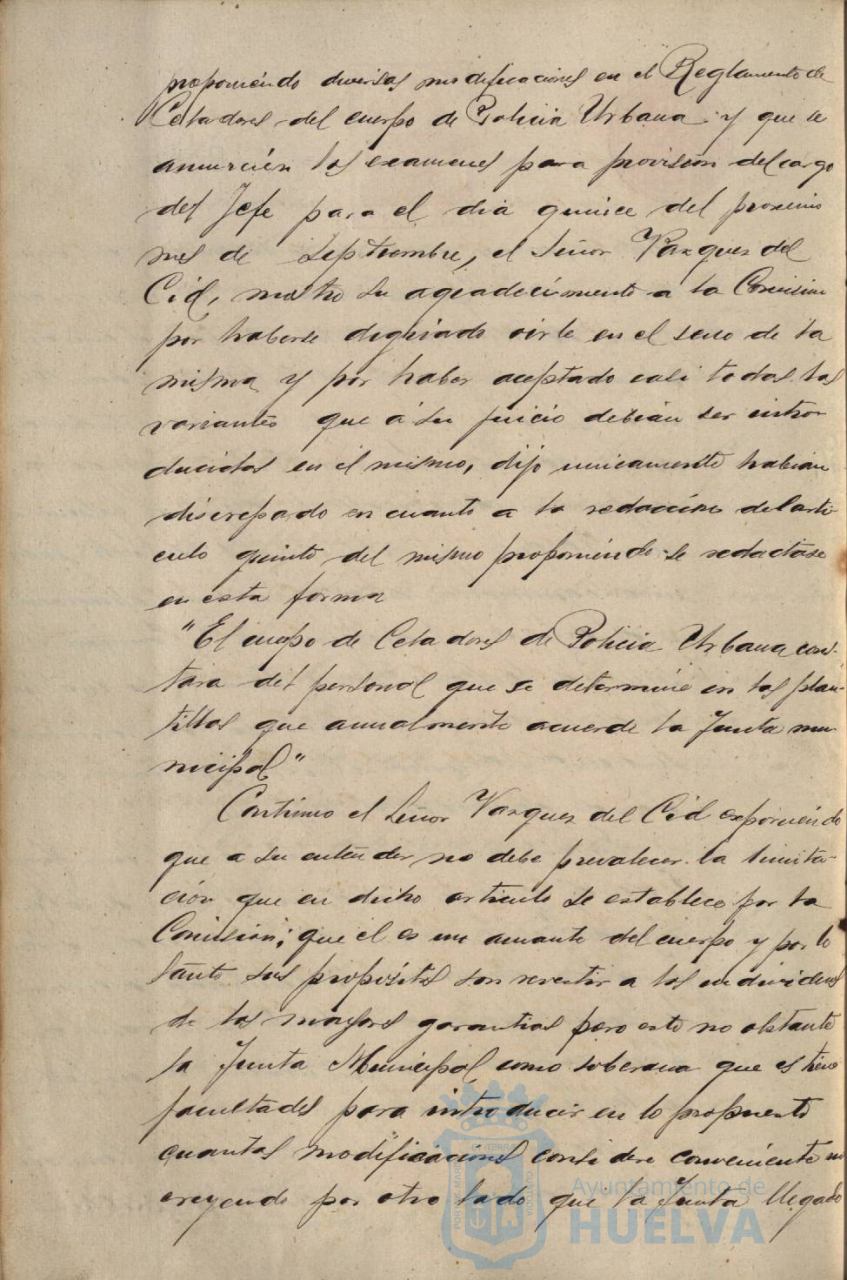 proponiéndo diversas modificaciones en el Reglamento de
Celadores del cuerpo de Policia Urbana y que se
anuncien los examenes para provision del cargo
del Jefe para el dia quince del proximo
mes de Septiembre, el Señor Vazquez del
Cid, mostro su agradecimiento a la Comision
por haberse dignado oirle en el seno de la
misma y por haber aceptado casi todas las
variantes que á su juicio debian ser intro
ducidas en el mismo, dijo unicamente habian
discrepado en cuanto a la redacción del arti
culo quinto del mismo proponiéndo se redactase
en esta forma
"El cuerpo de Celadores de Policia Urbana cons-
tara del personal que se determine en las plan-
tillas que anualmente acuerde la Junta mu-
nicipal"
Continuo el Señor Vazquez del Cid exponiéndo
que a su entender no debe prevalecer la limita-
ción que en dicho articulo se establece por la
Comision; que él es un amante del cuerpo y por lo
tanto sus propósitos son revestir a los individuos
de las mayores garantias pero esto no obstante
la Junta Municipal como soberana que es tiene
facultades para introducir en lo propuesto
cuantas modificaciones considere conveniente no
creyendo por otro lado que la Junta llegado
Ayuntamiento de
HUELVA